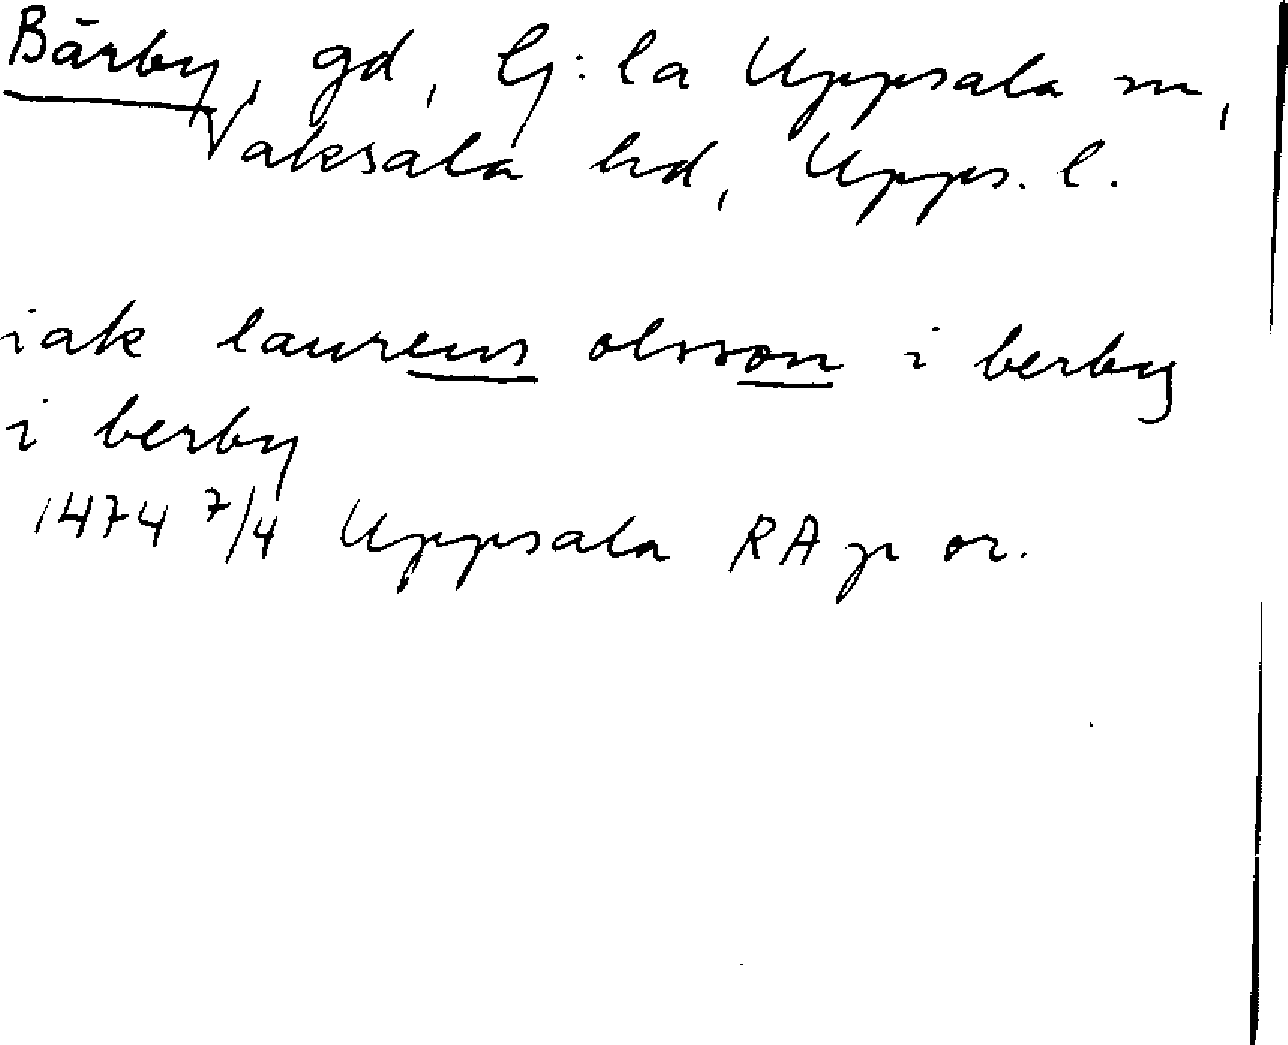 Bärby, gd, Gj:la Uppsala sn,
Vaksala hd, Upps. l.
iak laurens olsson i berby
i berby
1474 7/4 Uppsala RA p or.